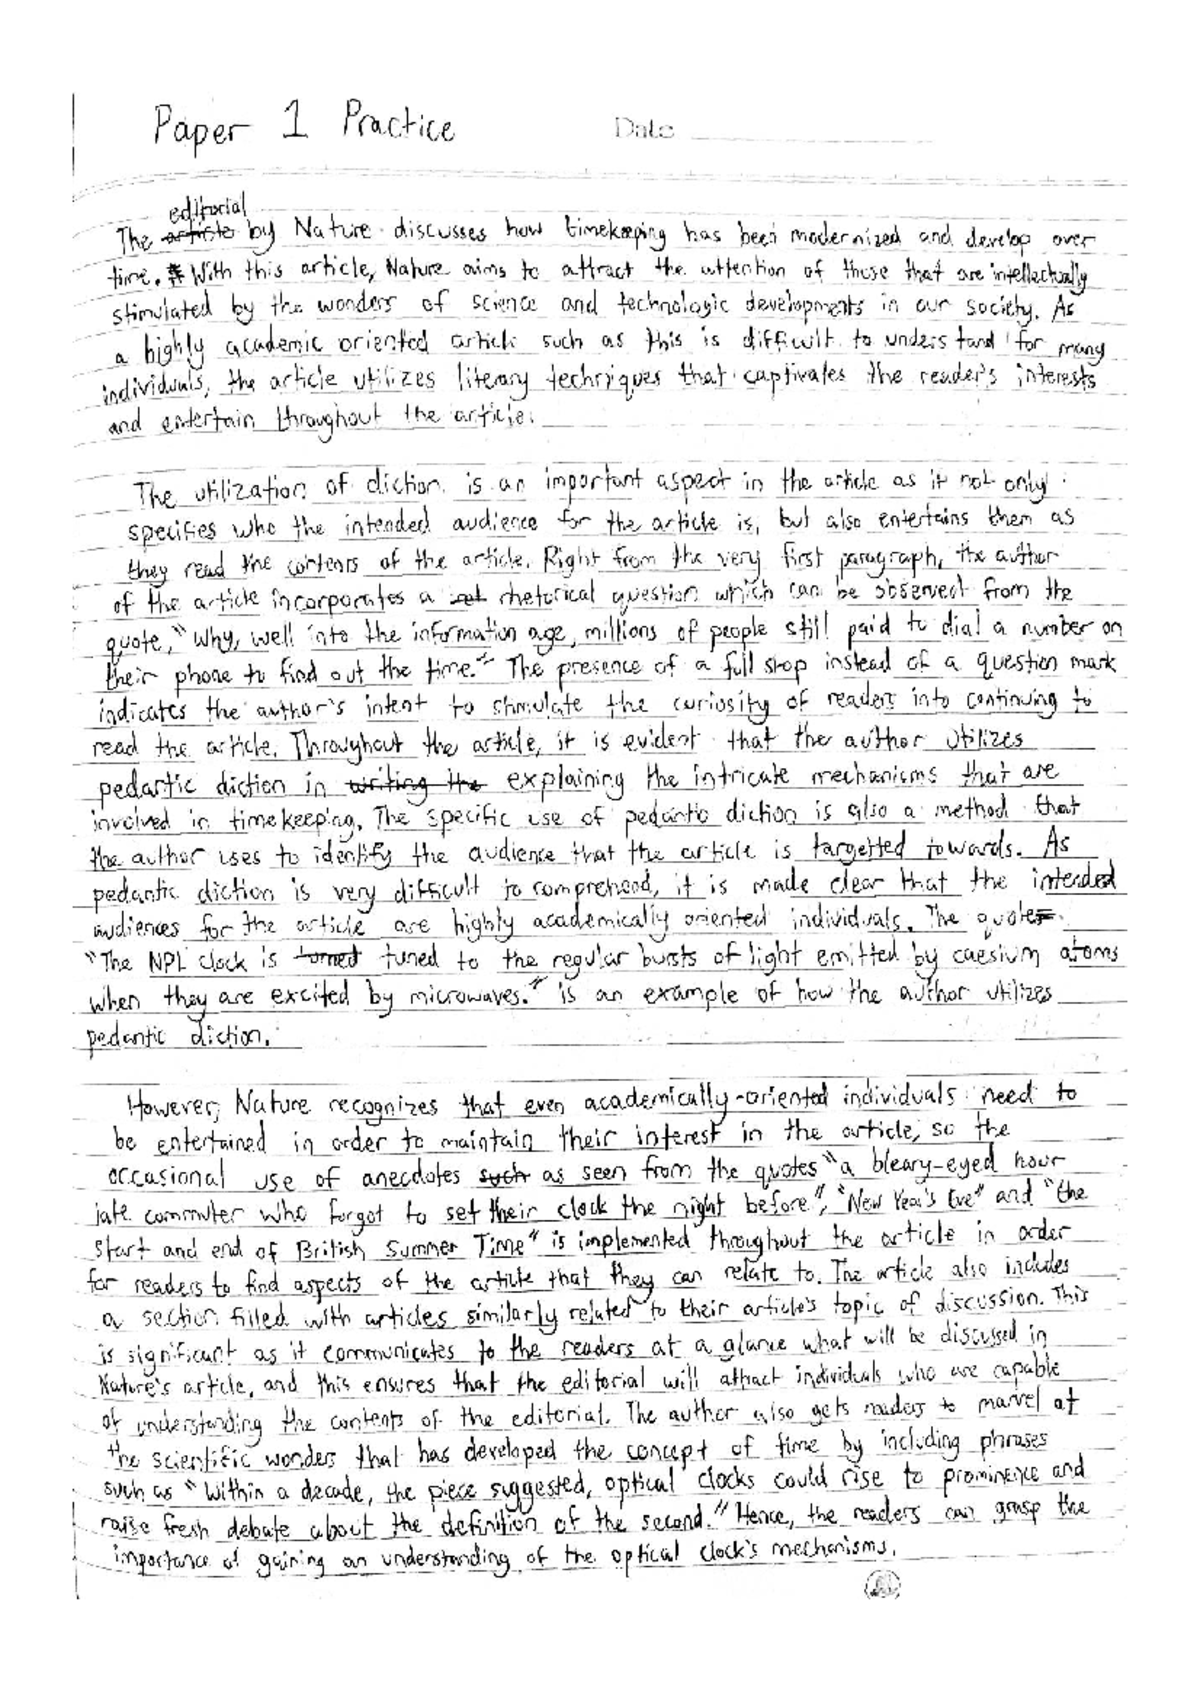 Paper 1 Practice
Date
editorial
The article by Nature discusses how timekeeping has been modernized and develop over
time. With this article, Nature aims to attract the attention of those that are intellectually
stimulated by the wonders of science and technologic developments in our society. As
a highly academic oriented article such as this is difficult to understand for many
individuals, the article utilizes literary techniques that captivates the reader's interests
and entertain throughout the article.
The utilization of diction is an important aspect in the article as it not only
specifies who the intended audience for the article is, but also entertains them as
they read the contents of the article. Right from the very first paragraph, the author
of the article incorporates a rhetorical question which can be observed from the
quote, "Why, well into the information age, millions of people still paid to dial a number on
their phone to find out the time." The presence of a full stop instead of a question mark
indicates the author's intent to stimulate the curiosity of readers into continuing to
read the article. Throughout the article, it is evident that the author utilizes
pedantic diction in writing the explaining the intricate mechanisms that are
involved in timekeeping. The specific use of pedantic diction is also a method that
the author uses to identify the audience that the article is targetted towards. As
pedantic diction is very difficult to comprehend, it is made clear that the intended
audiences for the article are highly academically oriented individuals. The quote
"The NPL clock is turned tuned to the regular bursts of light emitted by caesium atoms
when they are excited by microwaves." is an example of how the author utilizes
pedantic diction.
However, Nature recognizes that even academically-oriented individuals need to
be entertained in order to maintain their interest in the article, so the
occasional use of anecdotes such as seen from the quotes "a bleary-eyed hour
late commuter who forgot to set their clock the night before", "New Year's Eve" and "the
start and end of British Summer Time" is implemented throughout the article in order
for readers to find aspects of the article that they can relate to. The article also includes
a section filled with articles similarly related to their article's topic of discussion. This
is significant as it communicates to the readers at a glance what will be discussed in
Nature's article, and this ensures that the editorial will attract individuals who are capable
of understanding the contents of the editorial. The author also gets readers to marvel at
the scientific wonders that has developed the concept of time by including phrases
such as "Within a decade, the piece suggested, optical clocks could rise to prominence and
raise fresh debate about the definition of the second." Hence, the readers can grasp the
importance of gaining an understanding of the optical clock's mechanisms.